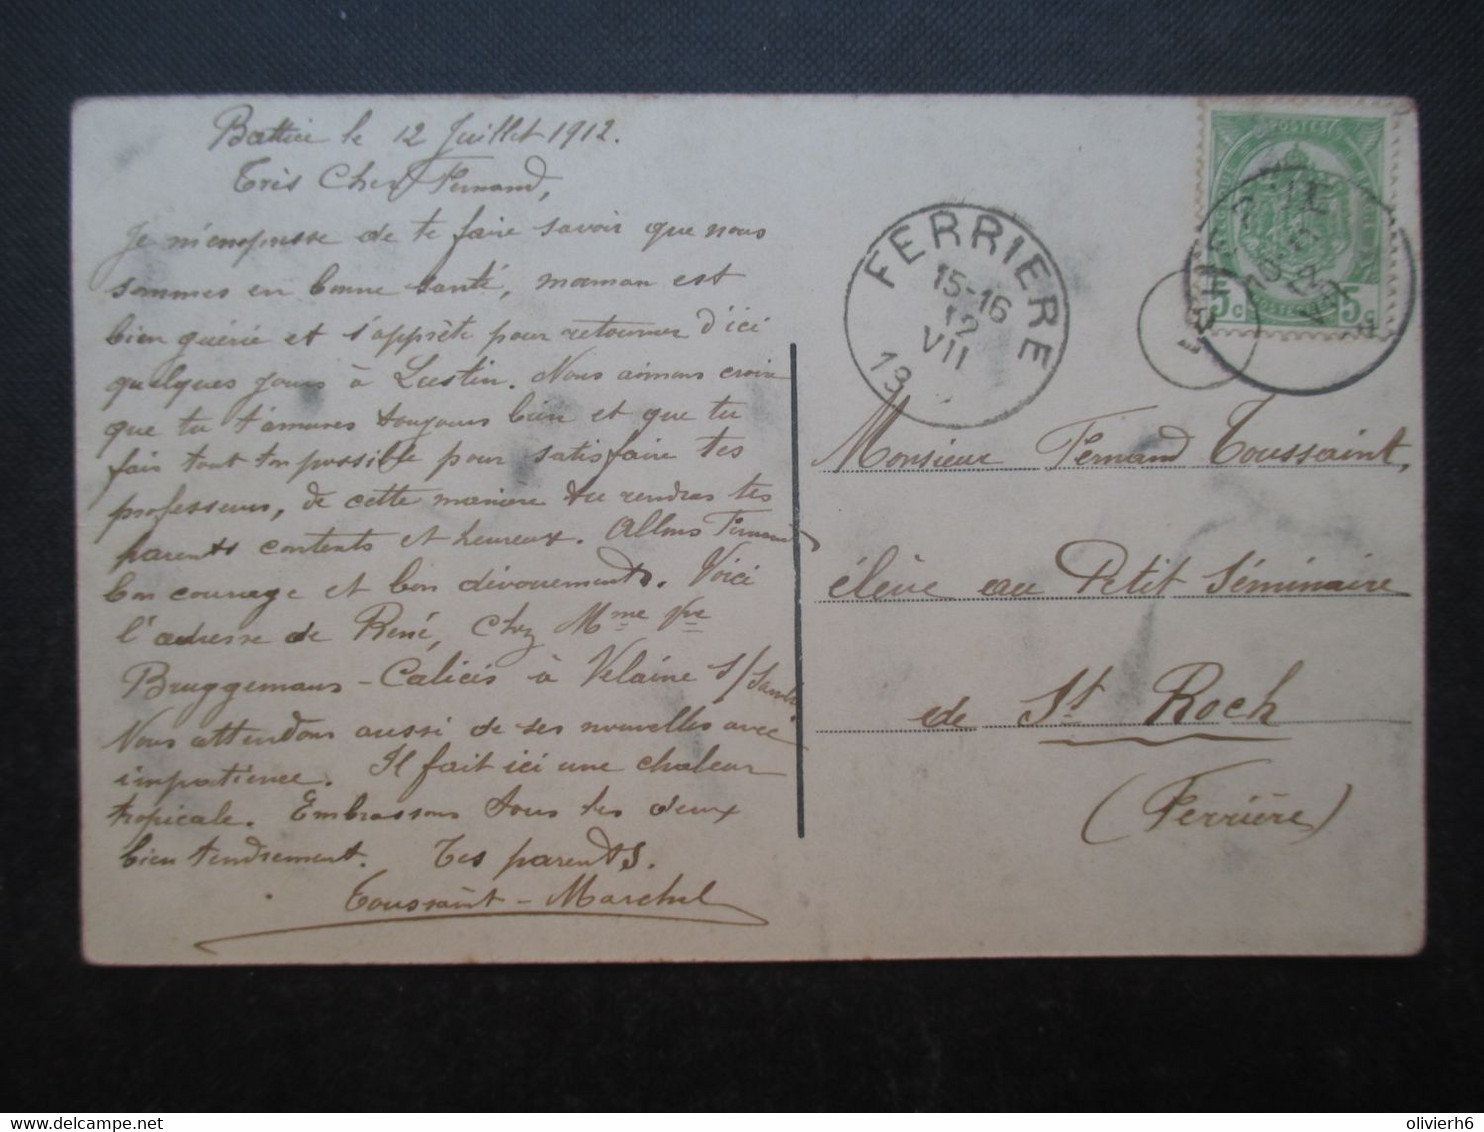 Battice le 12 Juillet 1912.
Très Cher Fernand,
Je m'empresse de te faire savoir que nous
sommes en bonne santé, maman est
bien guérie et s'apprête pour retourner d'ici
quelques jours à Lustin. Nous aimons croire
que tu t'amuses toujours bien et que tu
fais tout ton possible pour satisfaire tes
professeurs, de cette manière tu rendras tes
parents contents et heureux. Allons Fernand
bon courage et bon dévouement. Voici
l'adresse de René, chez Mme Vve
Bruggemans - Calicis à Velaine s/Sambre
Nous attendons aussi de ses nouvelles avec
impatience. Il fait ici une chaleur
tropicale. Embrassons tous les deux
bien tendrement. Tes parents.
Toussaint - Marchal
FERRIERE
15-16
12
VII
19
5c 5c
Monsieur Fernand Toussaint,
élève au Petit Séminaire
de St Roch
(Ferrière)
olivierh6